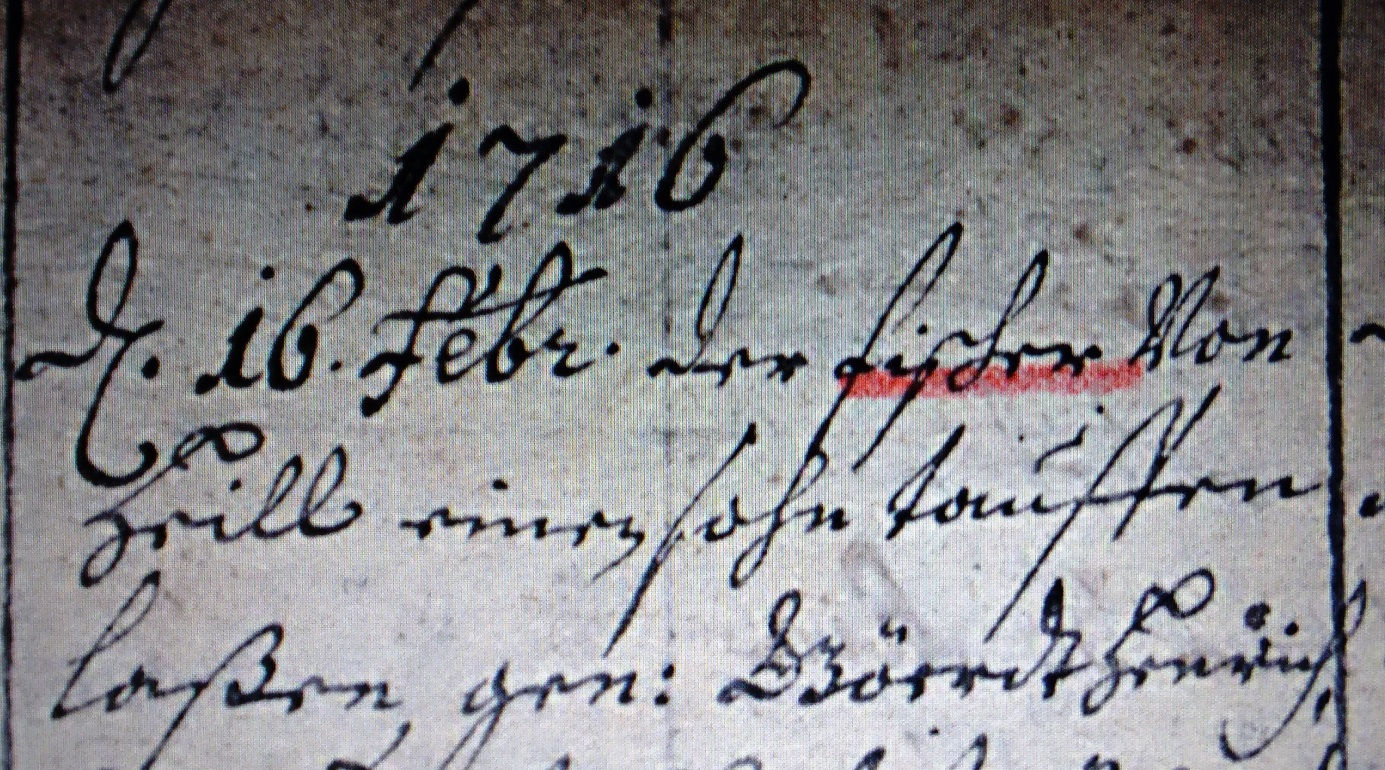 1716
d. 16. Febr. der fischer Von
Heill einen sohn tauffen
laßen, gen: Göerdt Henrich